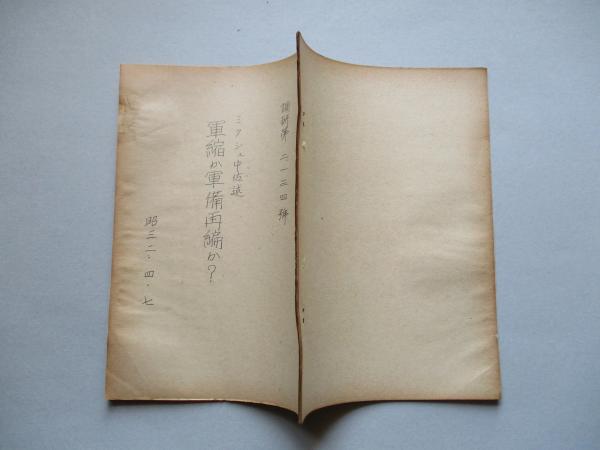 調研第二一三四號
ミクシュ中佐述
軍縮か軍備再編か?
昭三二・四・七